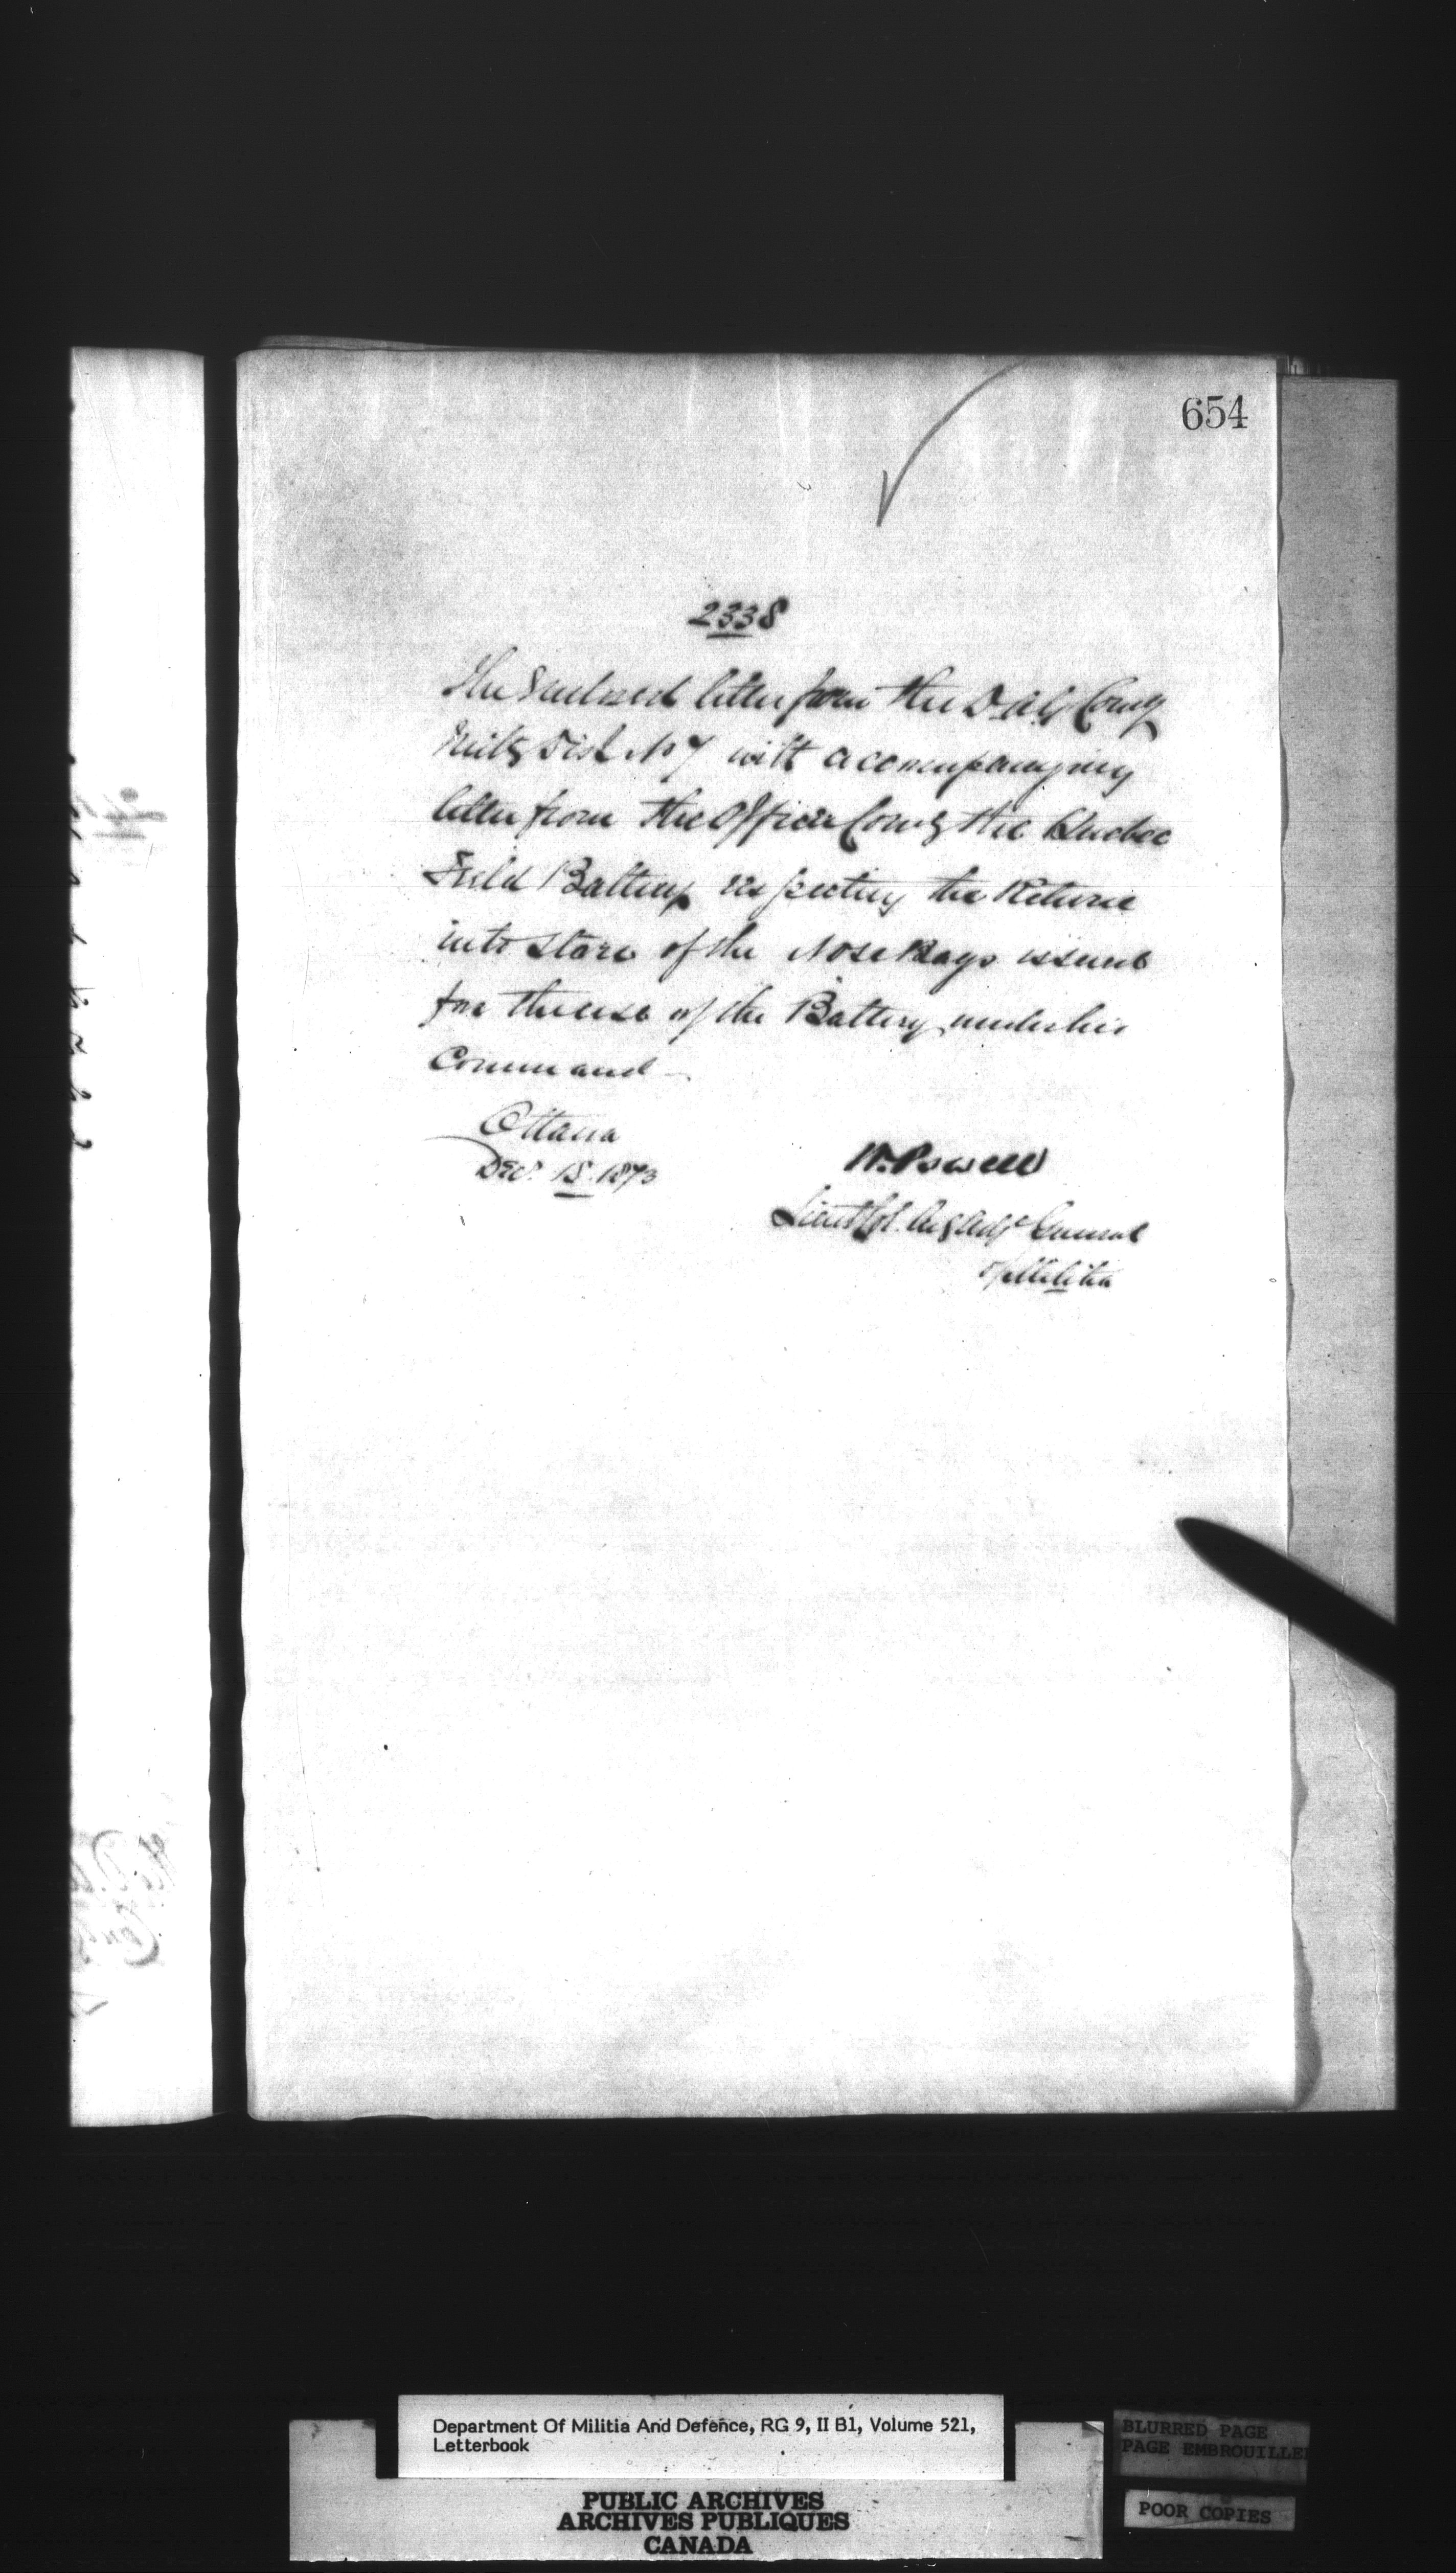 654
2338
The Enclosed letter from the D.A.G. Comg
Milty Dist No 7 with accompanying
letter from the Officer Comg the Quebec
Field Battery respecting the Return
into Store of the Nose Bags issued
for the use of the Battery under his
Command
Ottawa
Decr 18. 1873
W. Powell
Lieut Col. Actg Adjt General
of Militia
Department Of Militia And Defence, RG 9, II B1, Volume 521,
Letterbook
PUBLIC ARCHIVES
ARCHIVES PUBLIQUES
CANADA
BLURRED PAGE
PAGE EMBROUILLE
POOR COPIES